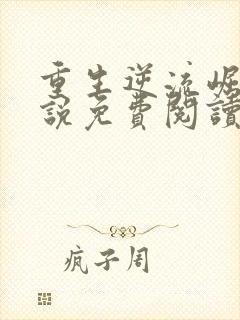 重生逆流崛
說免費閱讀
疯子周